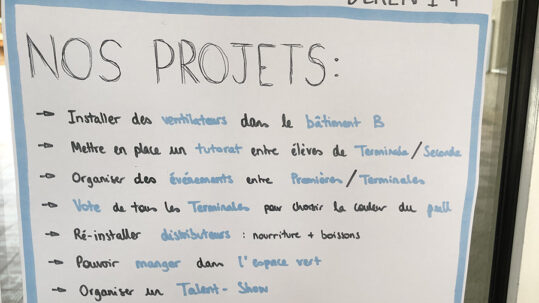 NOS PROJETS:
→ Installer des ventilateurs dans le bâtiment B
→ Mettre en place un tutorat entre élèves de Terminale/Seconde
→ Organiser des événements entre Premières/Terminales
→ Vote de tous les Terminales pour choisir la couleur du pull
→ Ré-installer distributeurs : nourriture + boissons
→ Pouvoir manger dans l'espace vert
→ Organiser un Talent-Show